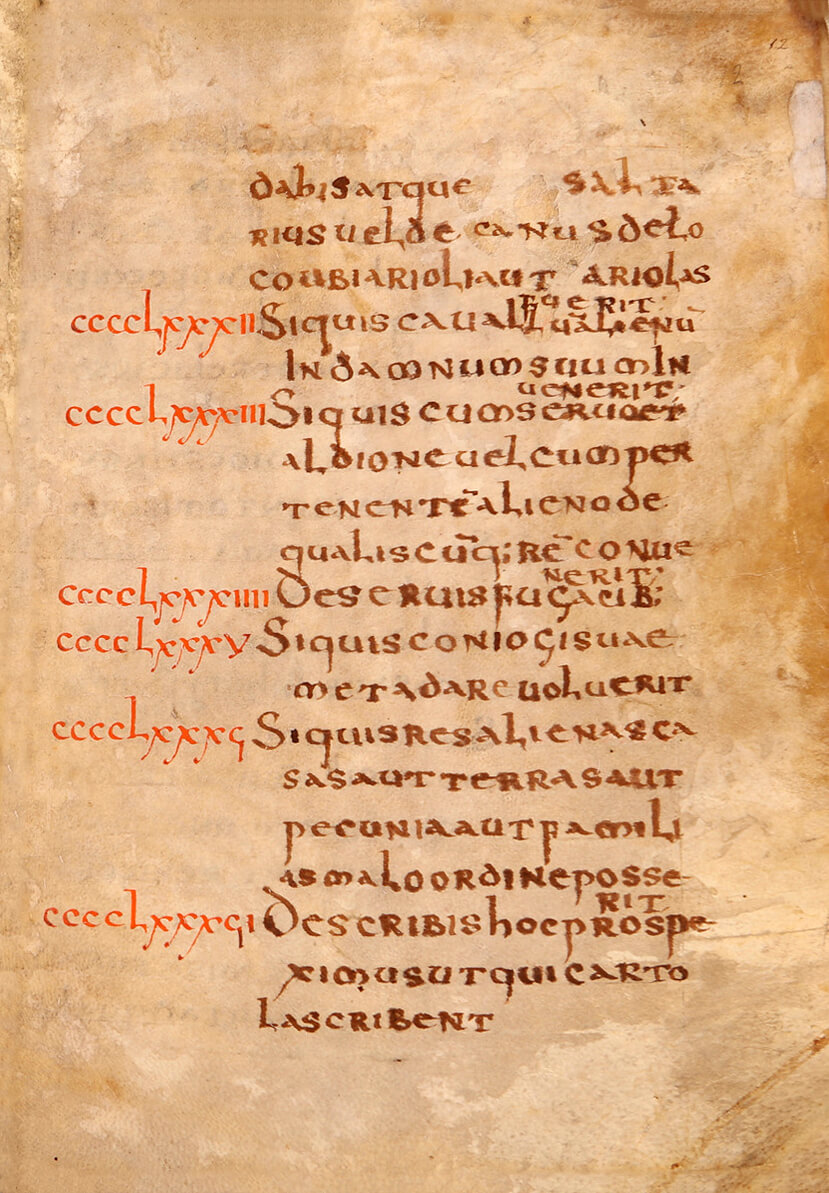 12
dabis atque saltA
rius uel decanus delo
co ubi arioli aut ariolas
ccccLxxxii Si quis cauall uāl alienū
fuerit
in damnum suum in
uenerit;
ccccLxxxiii Si quis cum seruo et
aldione uel cum per
tenentē alieno de
qualiscūq; rē conue
nerit;
ccccLxxxiiii De seruis fugacib;
ccccLxxxv Si quis coniogi suae
meta dare uoluerit
ccccLxxxϛ Si quis res alienas ca
sas aut terras aut
pecunia aut famili
as malo ordine posse
rit
ccccLxxxϛi De scribis hoc prospe
ximus ut qui carto
la scribent